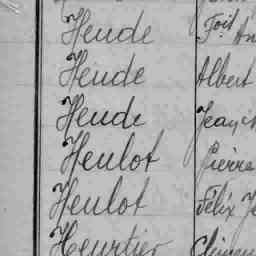 Heude Foit An
Heude Albert
Heude Jean
Heulot Pierre
Heulot Félix Je
Heurtier Clémen